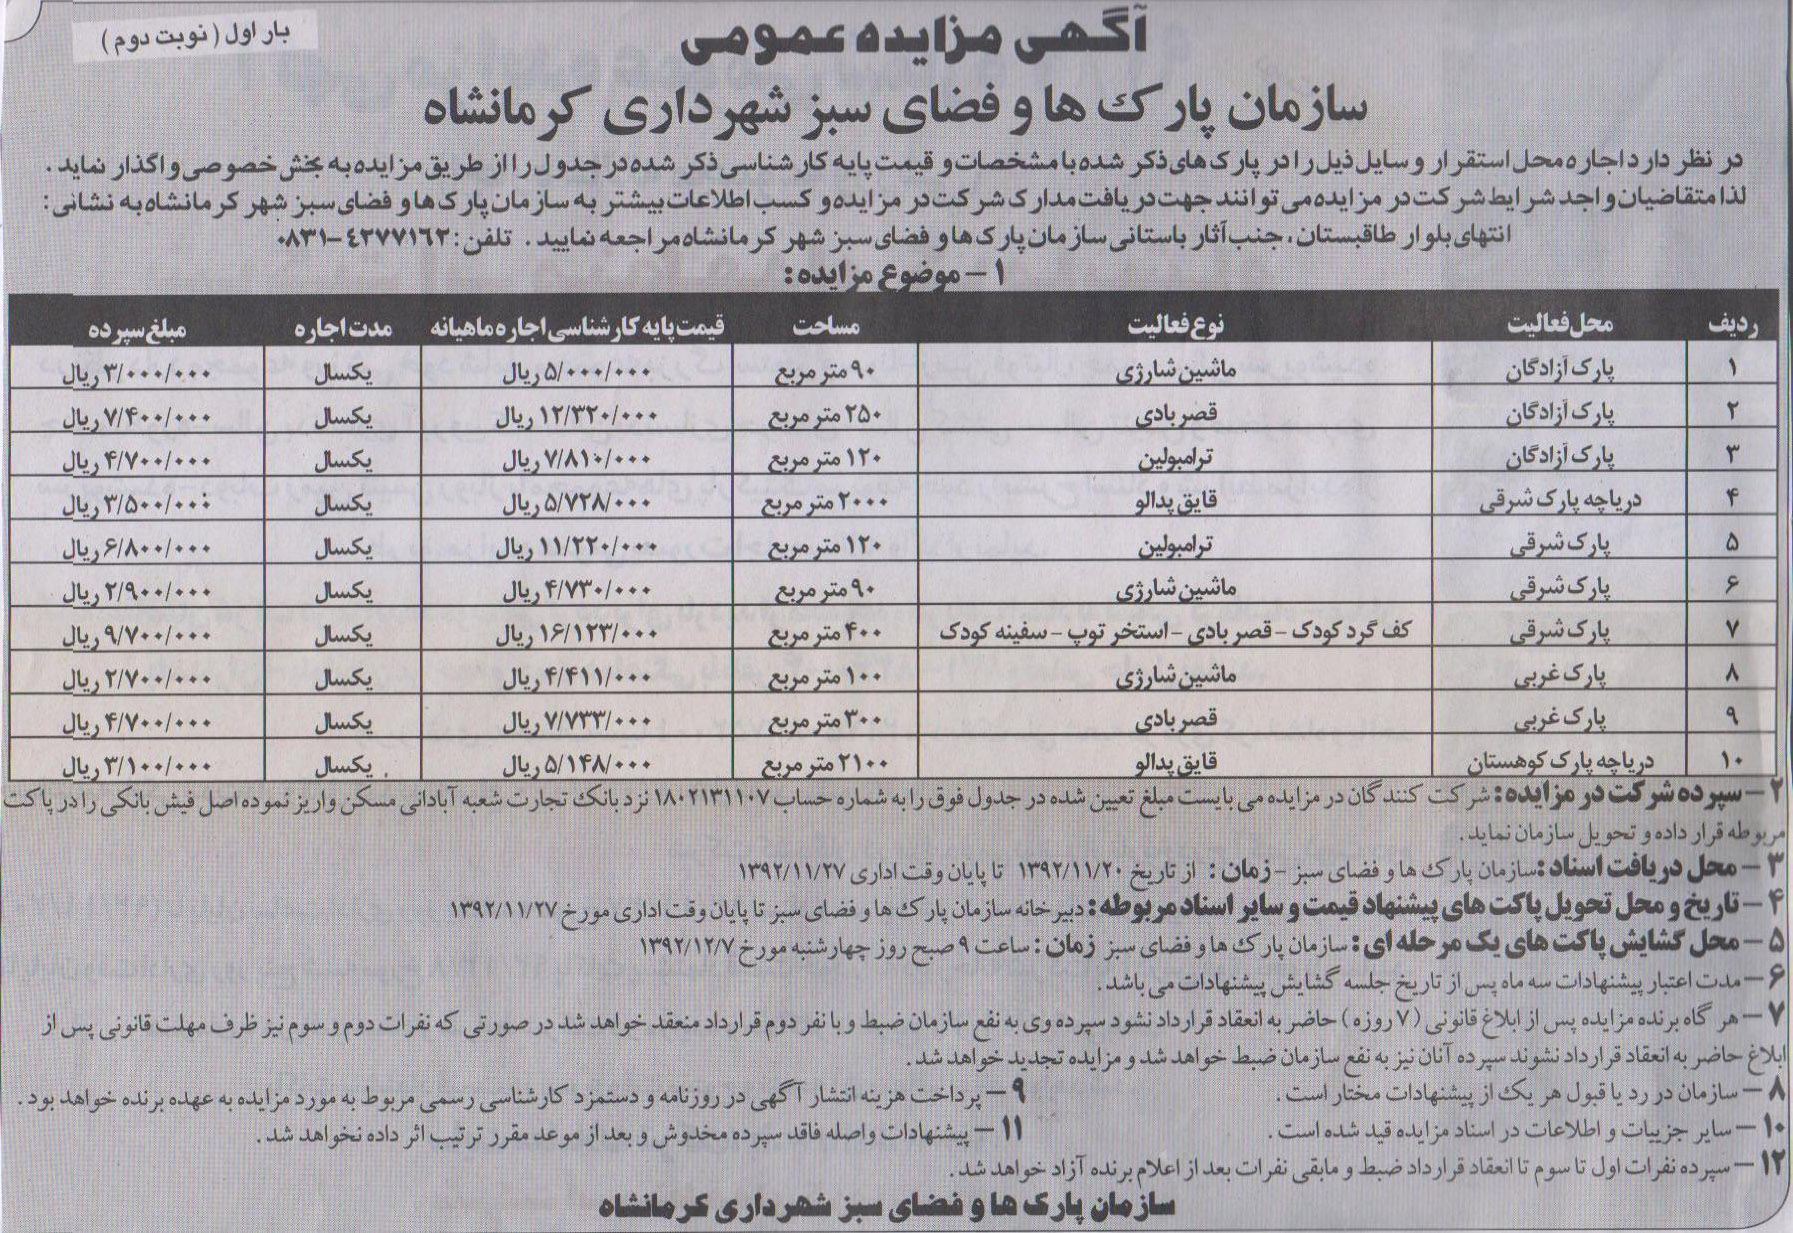 بار اول (نوبت دوم)
آگهی مزایده عمومی
سازمان پارک ها و فضای سبز شهرداری کرمانشاه
در نظر دارد اجاره محل استقرار وسایل ذیل را در پارک های ذکر شده با مشخصات و قیمت پایه کارشناسی ذکر شده در جدول را از طریق مزایده به بخش خصوصی واگذار نماید.
لذا متقاضیان واجد شرایط شرکت در مزایده می توانند جهت دریافت مدارک شرکت در مزایده و کسب اطلاعات بیشتر به سازمان پارک ها و فضای سبز شهر کرمانشاه به نشانی:
انتهای بلوار طاقبستان، جنب آثار باستانی سازمان پارک ها و فضای سبز شهر کرمانشاه مراجعه نمایید. تلفن: ۴۲۷۷۱۶۲-۰۸۳۱
۱- موضوع مزایده:
ردیف محل فعالیت نوع فعالیت مساحت قیمت پایه کارشناسی اجاره ماهیانه مدت اجاره مبلغ سپرده
۱ پارک آزادگان ماشین شارژی ۹۰ متر مربع ۵/۰۰۰/۰۰۰ ریال یکسال ۳/۰۰۰/۰۰۰ ریال
۲ پارک آزادگان قصر بادی ۲۵۰ متر مربع ۱۲/۳۲۰/۰۰۰ ریال یکسال ۷/۴۰۰/۰۰۰ ریال
۳ پارک آزادگان ترامبولین ۱۲۰ متر مربع ۷/۸۱۰/۰۰۰ ریال یکسال ۴/۷۰۰/۰۰۰ ریال
۴ دریاچه پارک شرقی قایق پدالو ۲۰۰۰ متر مربع ۵/۷۲۸/۰۰۰ ریال یکسال ۳/۵۰۰/۰۰۰ ریال
۵ پارک شرقی ترامبولین ۱۲۰ متر مربع ۱۱/۲۲۰/۰۰۰ ریال یکسال ۶/۸۰۰/۰۰۰ ریال
۶ پارک شرقی ماشین شارژی ۹۰ متر مربع ۴/۷۳۰/۰۰۰ ریال یکسال ۲/۹۰۰/۰۰۰ ریال
۷ پارک شرقی کف گرد کودک - قصر بادی - استخر توپ - سفینه کودک ۴۰۰ متر مربع ۱۶/۱۲۳/۰۰۰ ریال یکسال ۹/۷۰۰/۰۰۰ ریال
۸ پارک غربی ماشین شارژی ۱۰۰ متر مربع ۴/۴۱۱/۰۰۰ ریال یکسال ۲/۷۰۰/۰۰۰ ریال
۹ پارک غربی قصر بادی ۳۰۰ متر مربع ۷/۷۳۳/۰۰۰ ریال یکسال ۴/۷۰۰/۰۰۰ ریال
۱۰ دریاچه پارک کوهستان قایق پدالو ۲۱۰۰ متر مربع ۵/۱۴۸/۰۰۰ ریال یکسال ۳/۱۰۰/۰۰۰ ریال
۲- سپرده شرکت در مزایده: شرکت کنندگان در مزایده می بایست مبلغ تعیین شده در جدول فوق را به شماره حساب ۱۸۰۲۱۳۱۱۰۷ نزد بانک تجارت شعبه آبادانی مسکن واریز نموده اصل فیش بانکی را در پاکت
مربوطه قرار داده و تحویل سازمان نماید.
۳- محل دریافت اسناد: سازمان پارک ها و فضای سبز - زمان: از تاریخ ۱۳۹۲/۱۱/۲۰ تا پایان وقت اداری ۱۳۹۲/۱۱/۲۷
۴- تاریخ و محل تحویل پاکت های پیشنهاد قیمت و سایر اسناد مربوطه: دبیرخانه سازمان پارک ها و فضای سبز تا پایان وقت اداری مورخ ۱۳۹۲/۱۱/۲۷
۵- محل گشایش پاکت های یک مرحله ای: سازمان پارک ها و فضای سبز زمان: ساعت ۹ صبح روز چهارشنبه مورخ ۱۳۹۲/۱۲/۷
۶- مدت اعتبار پیشنهادات سه ماه پس از تاریخ جلسه گشایش پیشنهادات می باشد.
۷- هر گاه برنده مزایده پس از ابلاغ قانونی (۷ روزه) حاضر به انعقاد قرارداد نشود سپرده وی به نفع سازمان ضبط و با نفر دوم قرارداد منعقد خواهد شد در صورتی که نفرات دوم و سوم نیز ظرف مهلت قانونی پس از
ابلاغ حاضر به انعقاد قرارداد نشوند سپرده آنان نیز به نفع سازمان ضبط خواهد شد و مزایده تجدید خواهد شد.
۸- سازمان در رد یا قبول هر یک از پیشنهادات مختار است. ۹- پرداخت هزینه انتشار آگهی در روزنامه و دستمزد کارشناسی رسمی مربوط به مورد مزایده به عهده برنده خواهد بود.
۱۰- سایر جزییات و اطلاعات در اسناد مزایده قید شده است. ۱۱- پیشنهادات واصله فاقد سپرده مخدوش و بعد از موعد مقرر ترتیب اثر داده نخواهد شد.
۱۲- سپرده نفرات اول تا سوم تا انعقاد قرارداد ضبط و مابقی نفرات بعد از اعلام برنده آزاد خواهد شد.
سازمان پارک ها و فضای سبز شهرداری کرمانشاه